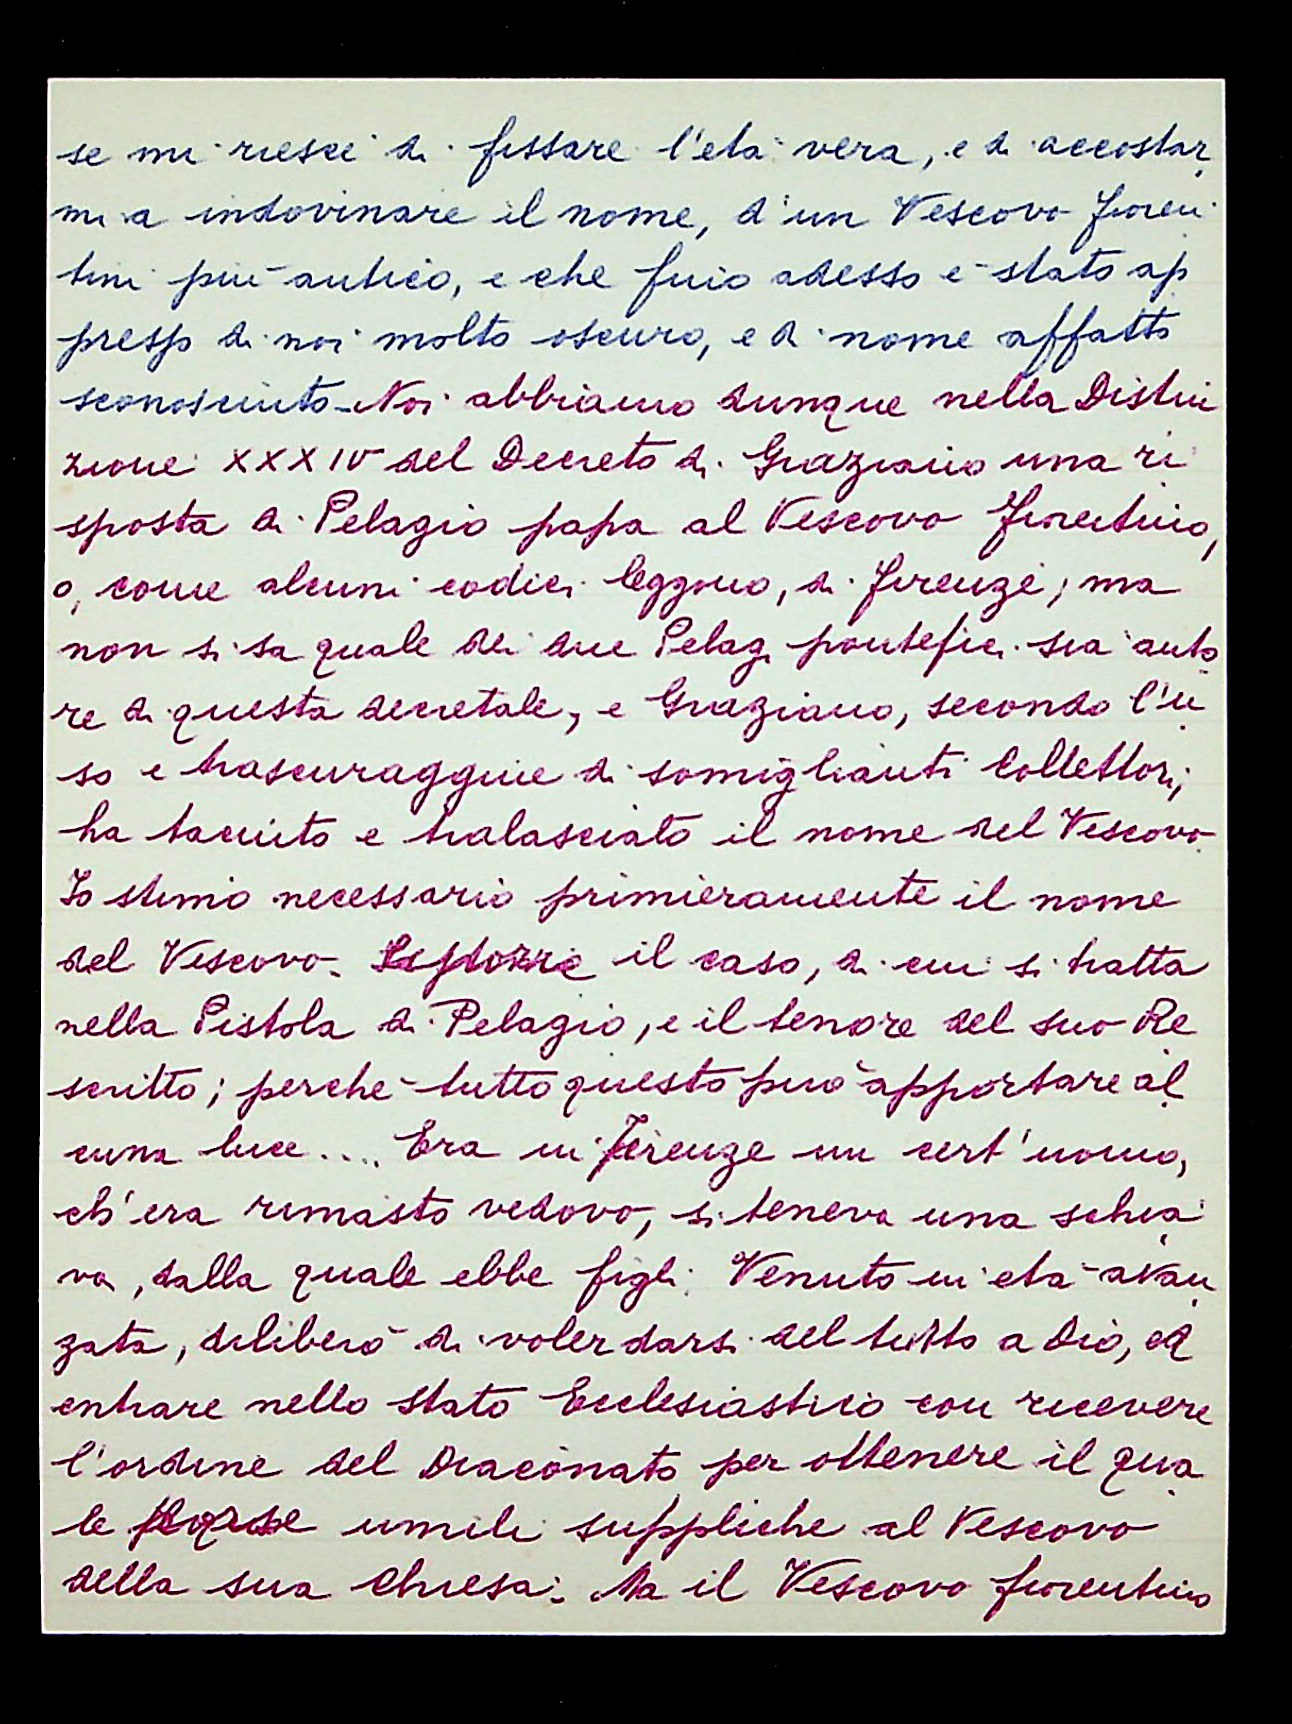 se mi riesce di fissare l'età vera, e di accostar
mi a indovinare il nome, d'un Vescovo fioren
tini più antico, e che fino adesso è stato ap
presso di noi molto oscuro, e di nome affatto
sconosciuto - Noi abbiamo dunque nella Distin
zione XXXIV del Decreto di Graziano una ri
sposta di Pelagio papa al Vescovo Fiorentino,
o, come alcuni codici leggono, di Firenze; ma
non si sa quale dei due Pelagi pontefici sia auto
re di questa decretale, e Graziano, secondo l'u
so e trascuraggine di somiglianti Collettori,
ha taciuto e tralasciato il nome del Vescovo.
Io stimo necessario primieramente il nome
del Vescovo. il caso, di cui si tratta
nella Pistola di Pelagio, e il tenore del suo Re
scritto; perchè tutto questo può apportare al
cuna luce.... Era in Firenze un cert'uomo,
ch'era rimasto vedovo, si teneva una schia
va, dalla quale ebbe figli. Venuto in età avan
zata, deliberò di voler darsi del tutto a Dio, ed
entrare nello stato Ecclesiastico con ricevere
l'ordine del Diaconato per ottenere il qua
le umili suppliche al Vescovo
della sua Chiesa. Ma il Vescovo fiorentino